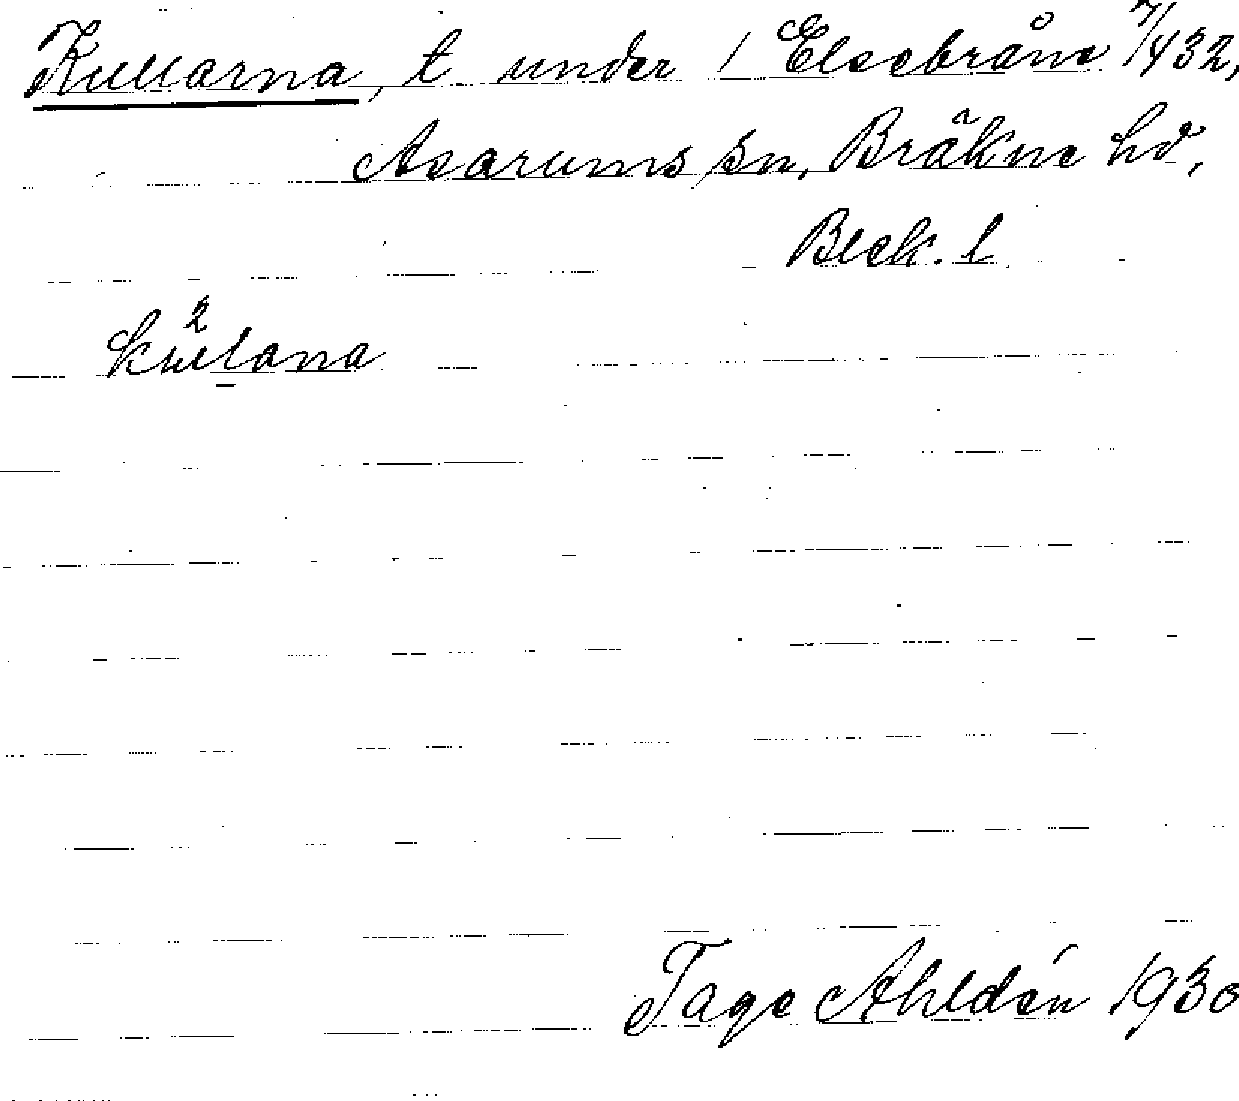 Kullarna, t. under 1 Elsebråne 7/432,
Asarums sn, Bräkne hd,
Blek. l.
Tage Ahldén 1930